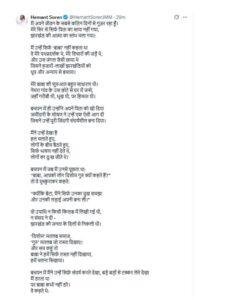 Hemant Soren @HemantSorenJMM · 29m
मैं अपने जीवन के सबसे कठिन दिनों से गुज़र रहा हूँ।
मेरे सिर से सिर्फ पिता का साया नहीं गया,
झारखंड की आत्मा का स्तंभ चला गया।
मैं उन्हें सिर्फ 'बाबा' नहीं कहता था
वे मेरे पथप्रदर्शक थे, मेरे विचारों की जड़ें थे,
और उस जंगल जैसी छाया थे
जिसने हजारों-लाखों झारखंडियों को
धूप और अन्याय से बचाया।
मेरे बाबा की शुरुआत बहुत साधारण थी।
नेमरा गांव के उस छोटे से घर में जन्मे,
जहाँ गरीबी थी, भूख थी, पर हिम्मत थी।
बचपन में ही उन्होंने अपने पिता को खो दिया
जमींदारी के शोषण ने उन्हें एक ऐसी आग दी
जिसने उन्हें पूरी जिंदगी संघर्षशील बना दिया।
मैंने उन्हें देखा है
हल चलाते हुए,
लोगों के बीच बैठते हुए,
सिर्फ भाषण नहीं देते थे,
लोगों का दुःख जीते थे।
बचपन में जब मैं उनसे पूछता था:
"बाबा, आपको लोग दिशोम गुरु क्यों कहते हैं?"
तो वे मुस्कुराकर कहते:
"क्योंकि बेटा, मैंने सिर्फ उनका दुख समझा
और उनकी लड़ाई अपनी बना ली।"
वो उपाधि न किसी किताब में लिखी गई थी,
न संसद ने दी -
झारखंड की जनता के दिलों से निकली थी।
'दिशोम' मतलब समाज,
'गुरु' मतलब जो रास्ता दिखाए।
और सच कहूं तो
बाबा ने हमें सिर्फ रास्ता नहीं दिखाया,
हमें चलना सिखाया।
बचपन में मैंने उन्हें सिर्फ संघर्ष करते देखा, बड़े बड़ों से टक्कर लेते देखा
मैं डरता था
पर बाबा कभी नहीं डरे।
वे कहते थे: